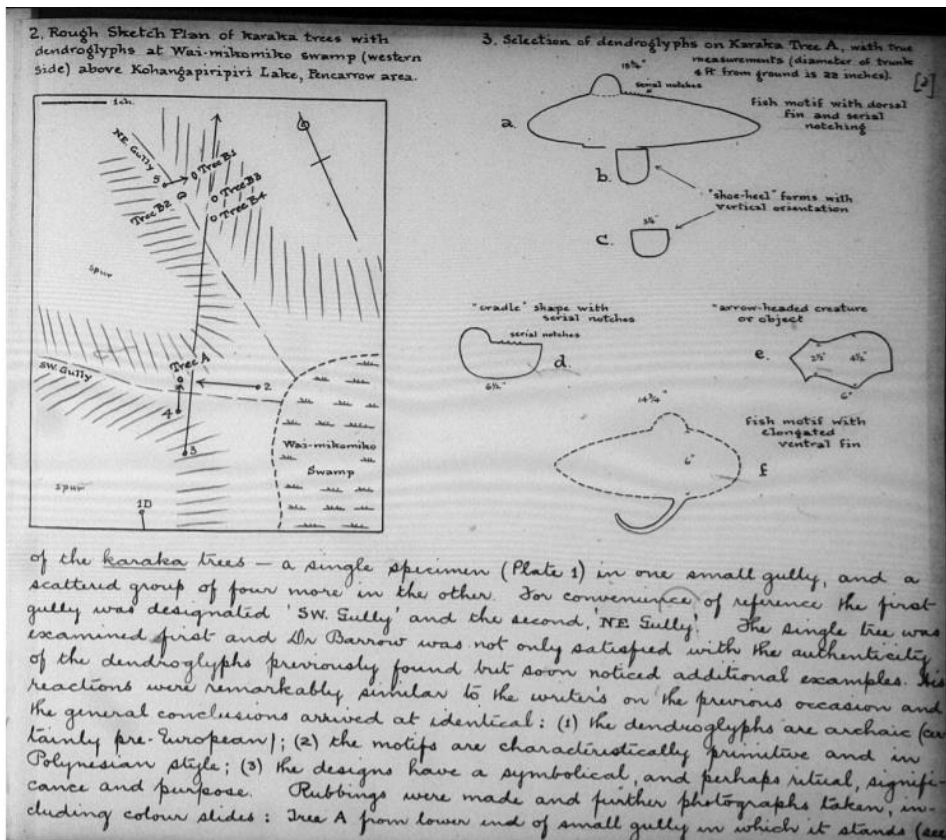 2. Rough Sketch Plan of karaka trees with
dendroglyphs at Wai-mikomiko swamp (western
side) above Kohangapiripiri Lake, Pencarrow area.
1ch.
NE Gully
5
Tree B1
Tree B2
Tree B3
Tree B4
Spur
Tree A
SW. Gully
2
4
3
Wai-mikomiko
Swamp
Spur
1D
3. Selection of dendroglyphs on Karaka Tree A, with true
measurements (diameter of trunk
4 ft from ground is 22 inches).
[2]
serial notches
fish motif with dorsal
fin and serial
notching
a.
b.
"shoe-heel" forms with
vertical orientation
c.
"cradle" shape with
serial notches
serial notches
d.
6½"
"arrow-headed creature
or object
e.
2½"
4½"
6"
14¾"
fish motif with
elongated
ventral fin
6"
f
of the karaka trees — a single specimen (Plate 1) in one small gully, and a
scattered group of four more in the other. For convenience of reference the first
gully was designated 'SW. Gully' and the second, 'NE Gully'. The single tree was
examined first and Dr Barrow was not only satisfied with the authenticity
of the dendroglyphs previously found but soon noticed additional examples. His
reactions were remarkably similar to the writer's on the previous occasion and
the general conclusions arrived at identical: (1) the dendroglyphs are archaic (cer
tainly pre-European); (2) the motifs are characteristically primitive and in
Polynesian style; (3) the designs have a symbolical, and perhaps ritual, signifi-
cance and purpose. Rubbings were made and further photographs taken, in-
cluding colour slides: Tree A from lower end of small gully in which it stands (see